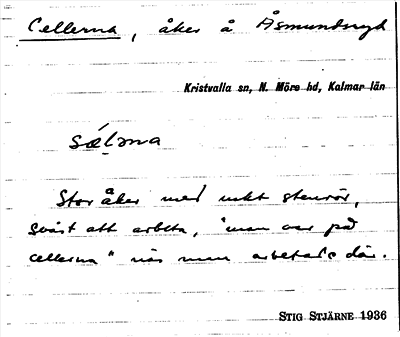 Cellerna, åker å Åsmundsryd
Kristvalla sn, N. Möre hd, Kalmar län
sælərna
Stor åker med mkt stenrör,
svårt att arbeta, "man var på
cellerna" när man arbetade där.
STIG STJÄRNE 1936